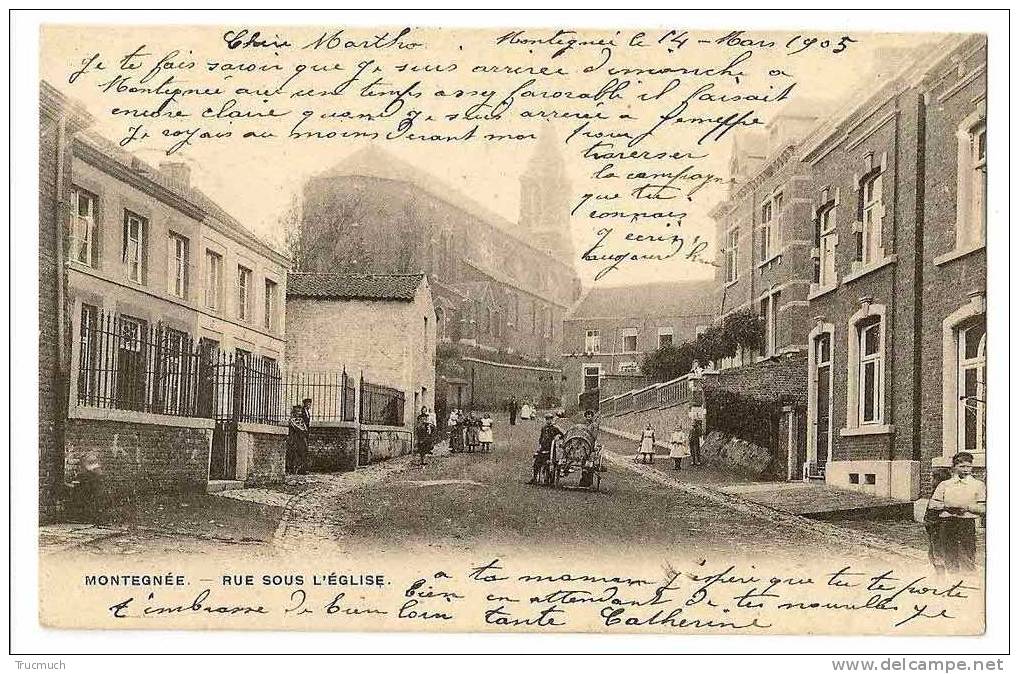 Chère Martha
Montegnée le 14 - Mars 1905
Je te fais savoir que Je suis arrivée dimanche a
Montegnée au un temps assez favorable il faisait
encore claire quand Je suis arrivée a Jemeppe
Je voyais au moins devant moi pour
traverser
la campagne
que tu
connais
J'écris
MONTEGNÉE. — RUE SOUS L'ÉGLISE.
a ta mamam J'espère que tu te porte
bien en attendant de tes nouvelle Je
t'embrasse de bien loin tante Catherine
Trucmuch
www.delcampe.net